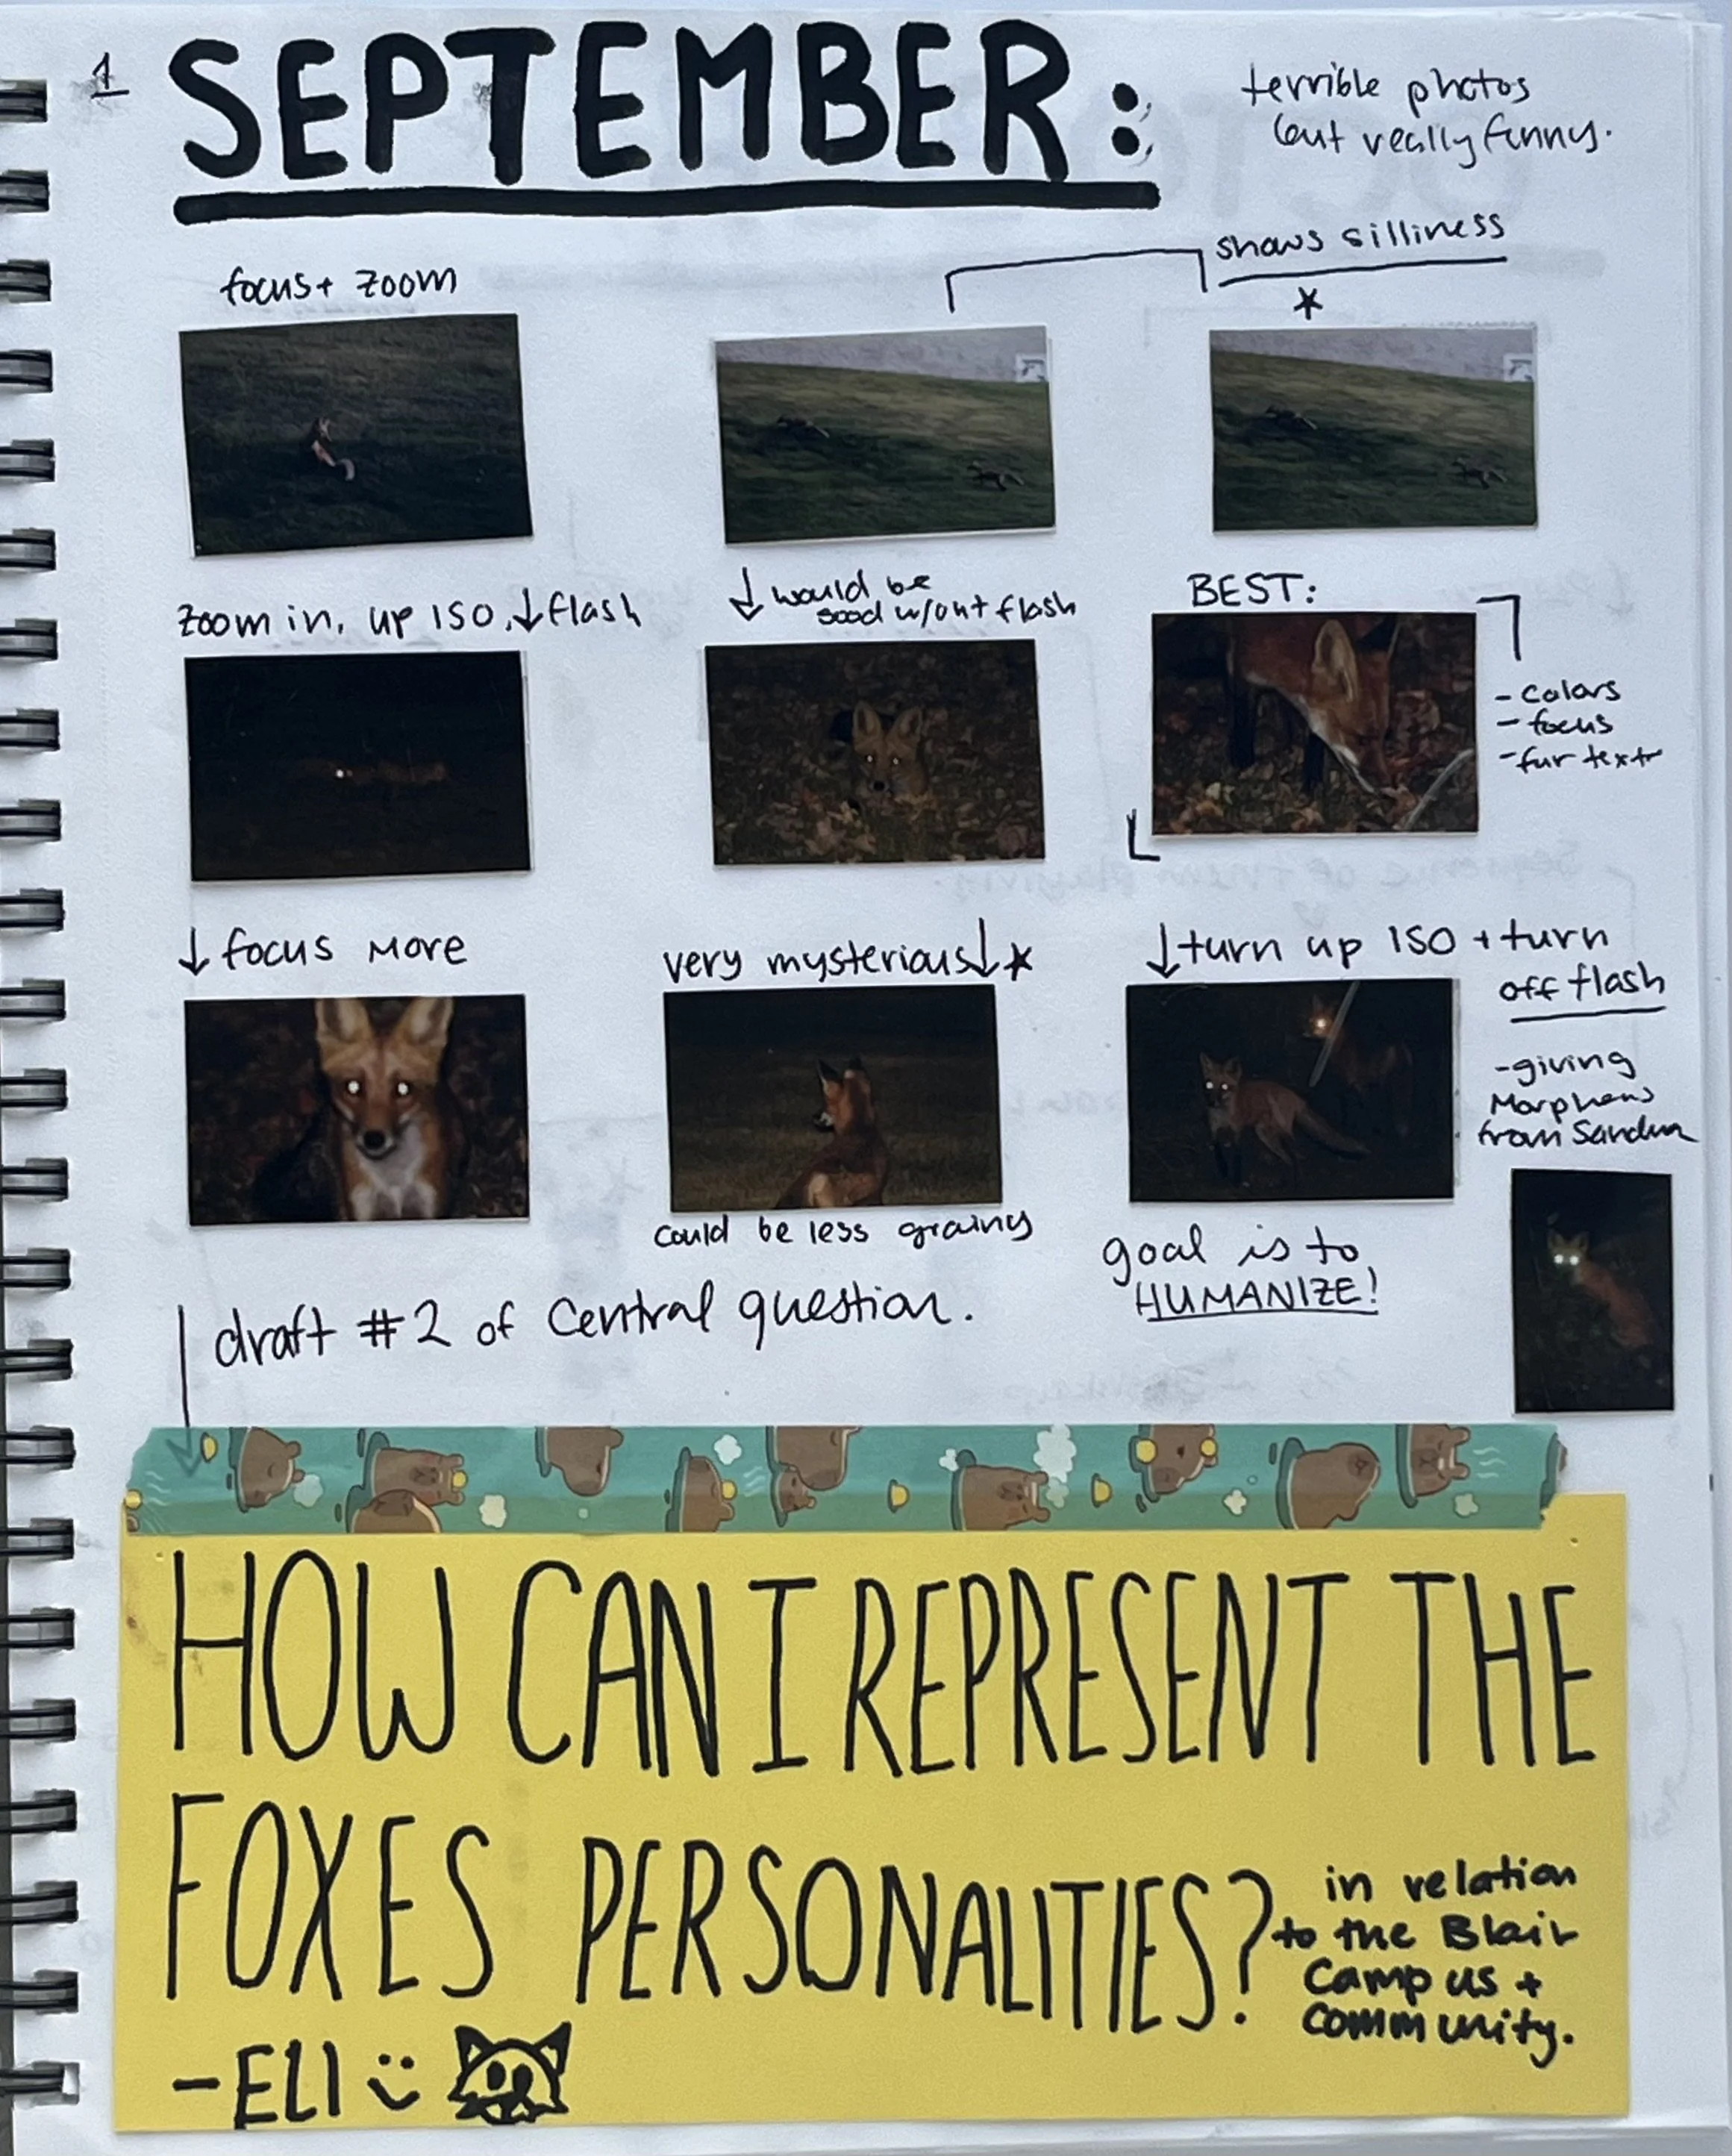 1
SEPTEMBER:
terrible photos
but really funny.
shows silliness
focus + zoom
zoom in, up ISO, ↓ flash
↓ would be
good w/out flash
BEST:
- colors
- focus
- fur textr
↓ focus more
very mysterious ↓ ★
↓ turn up ISO + turn
off flash
could be less grainy
- giving
Morpheus
from Sandman
goal is to
HUMANIZE!
draft #2 of central question.
HOW CAN I REPRESENT THE
FOXES PERSONALITIES?
in relation
to the Blair
Campus +
Community.
- ELI